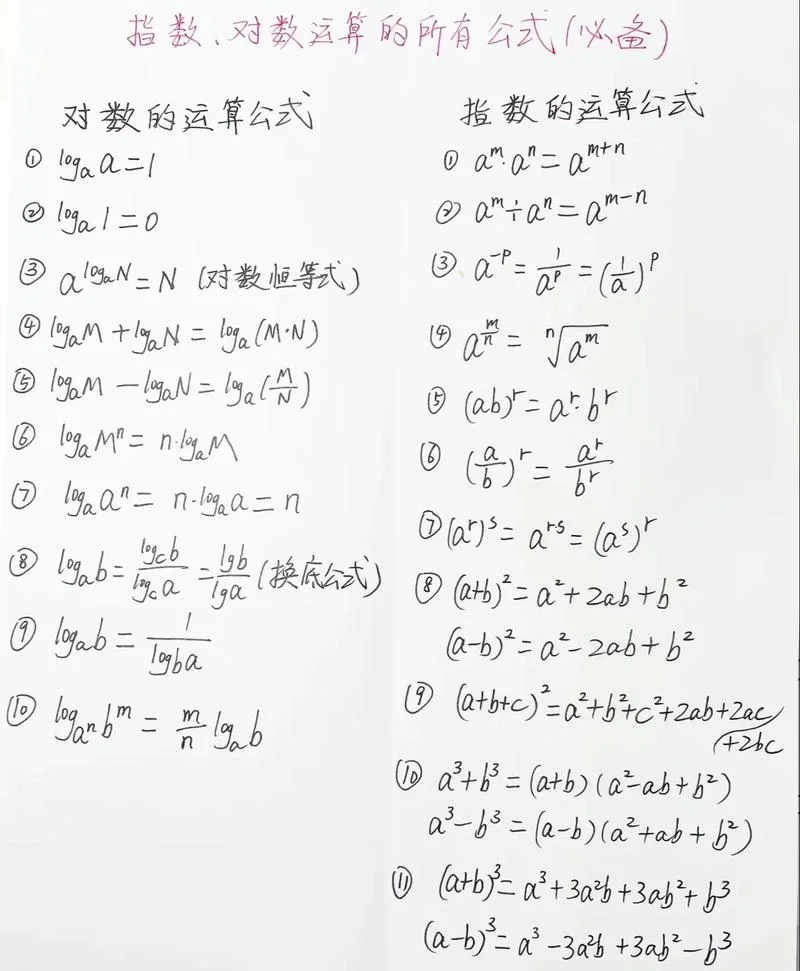 指数、对数运算的所有公式(必备)
对数的运算公式
① logₐa=1
② logₐ1=0
③ a^(logₐN)=N (对数恒等式)
④ logₐM+logₐN=logₐ(M·N)
⑤ logₐM-logₐN=logₐ(M/N)
⑥ logₐMⁿ=n·logₐM
⑦ logₐaⁿ=n·logₐa=n
⑧ logₐb=log_c b/log_c a=lgb/lga (换底公式)
⑨ logₐb=1/log_b a
⑩ log_(aⁿ) b^m=m/n logₐb
指数的运算公式
① a^m·a^n=a^(m+n)
② a^m÷a^n=a^(m-n)
③ a^(-p)=1/a^p=(1/a)^p
④ a^(m/n)=ⁿ√(a^m)
⑤ (ab)^r=a^r·b^r
⑥ (a/b)^r=a^r/b^r
⑦ (a^r)^s=a^(rs)=(a^s)^r
⑧ (a+b)²=a²+2ab+b²
(a-b)²=a²-2ab+b²
⑨ (a+b+c)²=a²+b²+c²+2ab+2ac
+2bc
⑩ a³+b³=(a+b)(a²-ab+b²)
a³-b³=(a-b)(a²+ab+b²)
⑪ (a+b)³=a³+3a²b+3ab²+b³
(a-b)³=a³-3a²b+3ab²-b³